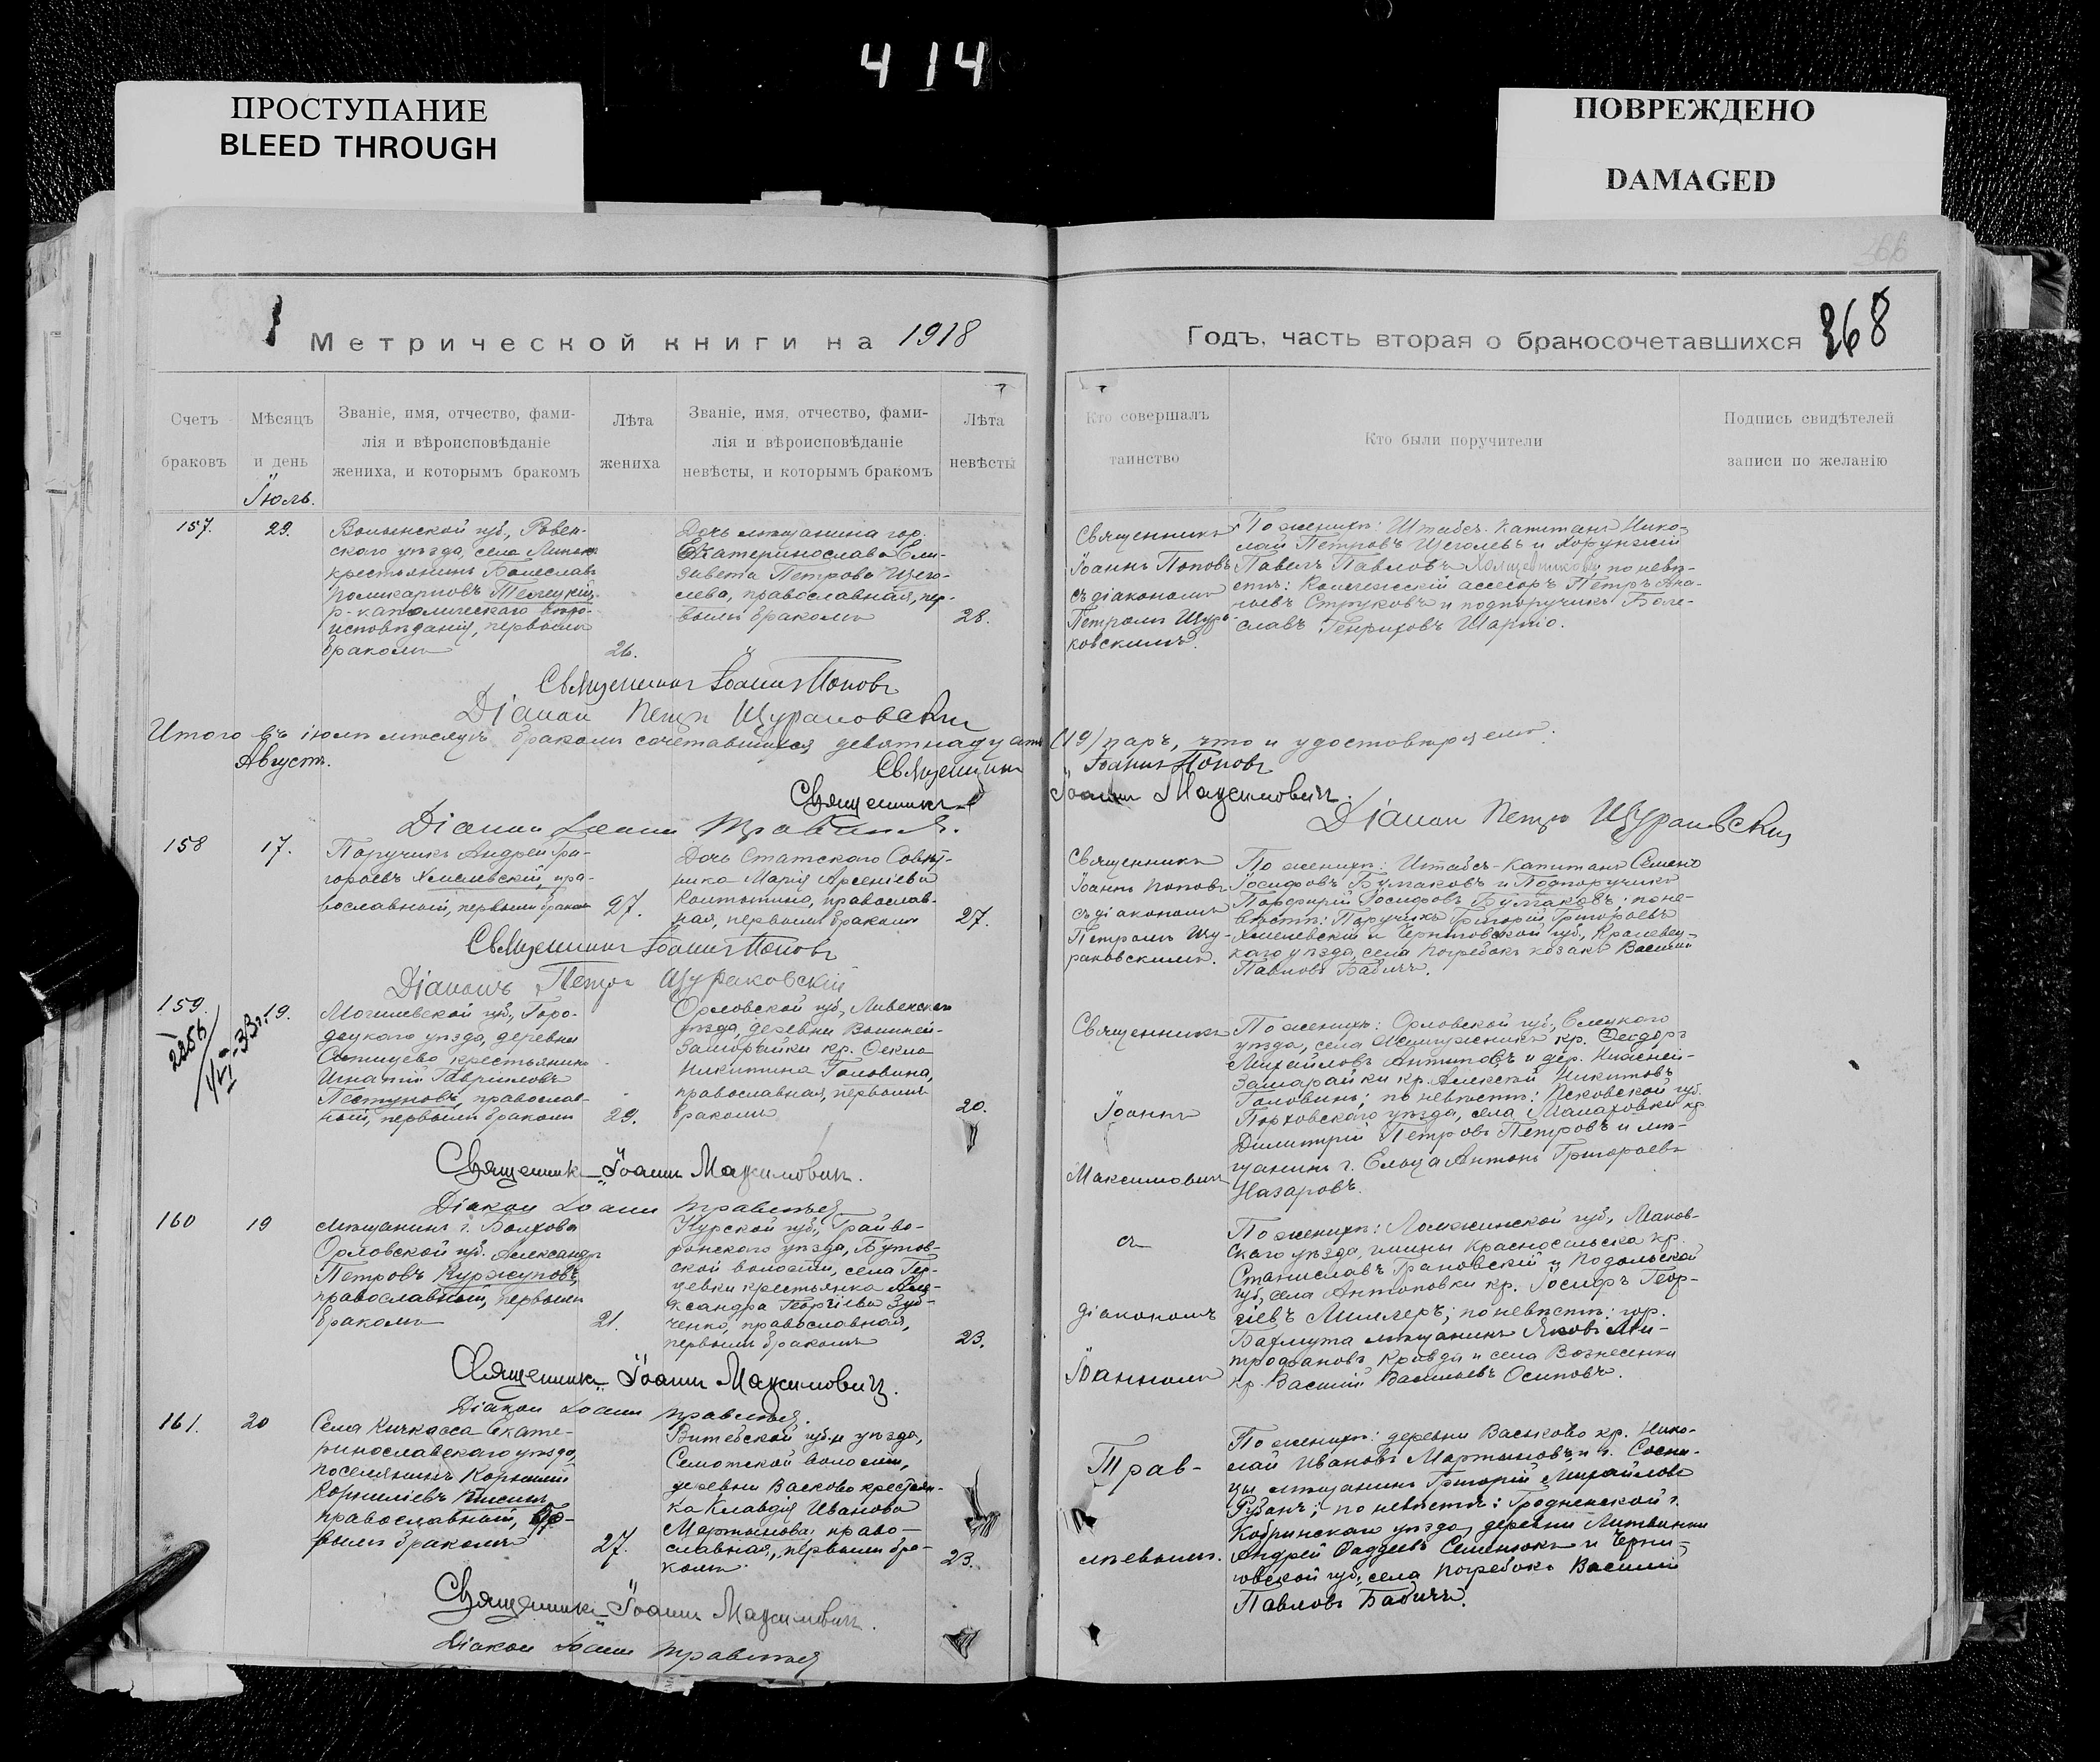 4 14
ПРОСТУПАНИЕ
BLEED THROUGH
ПОВРЕЖДЕНО
DAMAGED
Метрической книги на 1918
Годъ, часть вторая о бракосочетавшихся 368
Счетъ браковъ
Мѣсяцъ и день
Званіе, имя, отчество, фами-
лія и вѣроисповѣданіе
жениха, и которымъ бракомъ
Лѣта жениха
Званіе, имя, отчество, фами-
лія и вѣроисповѣданіе
невѣсты, и которымъ бракомъ
Лѣта невѣсты
Кто совершалъ таинство
Кто были поручители
Подпись свидѣтелей
записи по желанію
Іюль.
157.
29.
Волынской губ., Ровен-
скаго уѣзда, села
крестьянинъ Болеславъ
Поликарповъ
р-католическаго вѣро-
исповѣданія, первымъ
бракомъ
26.
Дочь мѣщанина гор.
Екатеринослава Ели-
завета Петрова Щего-
лева, православная, пер-
вымъ бракомъ
28.
Священникъ
Іоаннъ Поповъ
съ діакономъ
Петромъ Щура-
ковскимъ.
По женихѣ: Штабсъ-Капитанъ Нико-
лай Петровъ Щеголевъ и Хорунжій
Павелъ Павловъ по невѣ-
стѣ: Коллежскій ассесоръ Петръ Ана-
ньевъ Струковъ и подпоручикъ Боле-
славъ Генриховъ
Священникъ Іоаннъ Поповъ
Діаконъ Петръ Щураковскій
Итого въ іюлѣ мѣсяцѣ бракомъ сочетавшихся девятнадцать (19) паръ, что и удостовѣряемъ:
Августъ.
Священникъ Іоаннъ Поповъ
Священникъ Іоаннъ Максимовичъ.
Діаконъ Іоаннъ
Діаконъ Петръ Щураковскій
158
17.
Поручикъ Андрей Гри-
горьевъ Хмелевскій, пра-
вославный, первымъ бракомъ
27.
Дочь Статскаго Совѣт-
ника Марія Арсеніева
православ-
ная, первымъ бракомъ
27.
Священникъ
Іоаннъ Поповъ
съ діакономъ
Петромъ Щу-
раковскимъ.
По женихѣ: Штабсъ-Капитанъ Семенъ
Іосифовъ Булгаковъ и Подпоручикъ
Порфирій Іосифовъ Булгаковъ; по не-
вѣстѣ: Поручикъ Григорій Григорьевъ
Хмелевскій и Черниговской губ., Кролевец-
каго уѣзда, села Погребокъ козакъ Василій
Павловъ Бабичъ.
Священникъ Іоаннъ Поповъ
Діаконъ Петръ Щураковскій
159.
19.
Могилевской губ., Горо-
децкаго уѣзда, деревни
крестьянинъ
Игнатій Гавриловъ
Пестуновъ, православ-
ный, первымъ бракомъ
29.
Орловской губ., Ливенскаго
уѣзда, деревни Вышней-
Заморайки кр. Оекла
Никитина Головина,
православная, первымъ
бракомъ
20.
Священникъ
Іоаннъ
Максимовичъ
По женихѣ: Орловской губ., Елецкаго
уѣзда, села кр. Ѳеодоръ
Михайловъ Антиповъ и дер. Нижней-
Замарайки кр. Алексѣй Никитовъ
Головинъ; по невѣстѣ: Псковской губ.
Порховскаго уѣзда, села Малаховки кр.
Димитрій Петровъ Петровъ и мѣ-
щанинъ г. Ельца Антонъ Григорьевъ
Назаровъ.
Священникъ Іоаннъ Максимовичъ.
Діаконъ Іоаннъ
160
19
Мѣщанинъ г. Болхова
Орловской губ. Александръ
Петровъ Куржуповъ,
православный, первымъ
бракомъ
21.
Курской губ., Грайво-
ронскаго уѣзда, Бутов-
ской волости, села Гер-
цевки крестьянка Але-
ксандра Георгіева Зуб-
ченко, православная,
первымъ бракомъ
23.
съ
діакономъ
Іоанномъ
По женихѣ: Ломжинской губ., Маков-
скаго уѣзда, гмины Красносельска кр.
Станиславъ Грановскій и Подольской
губ., села Антоновки кр. Іосифъ Геор-
гіевъ Миллеръ; по невѣстѣ: гор.
Бахмута мѣщанинъ Яковъ Ми-
трофановъ Кравда и села Вознесенки
кр. Василій Васильевъ Осиповъ.
Священникъ Іоаннъ Максимовичъ.
Діаконъ Іоаннъ
161.
20
Села Кичкасса Екате-
ринославскаго уѣзда,
поселянинъ Корнилій
Корниліевъ
православный, пер-
вымъ бракомъ
27.
Витебской губ. и уѣзда,
волости,
деревни Васково крестьян-
ка Клавдія Иванова
Мартынова, право-
славная, первымъ бра-
комъ
23.
Трав-
лѣевымъ.
По женихѣ: деревни Васьково кр. Нико-
лай Ивановъ Мартыновъ и г. Сосни-
цы мѣщанинъ Григорій Михайловъ
по невѣстѣ: Гродненской г.
Кобринскаго уѣзда, деревни Литвинки
Андрей Фаддеевъ Семенюкъ и Черни-
говской губ., села Погребокъ Василій
Павловъ Бабичъ.
Священникъ Іоаннъ Максимовичъ.
Діаконъ Іоаннъ